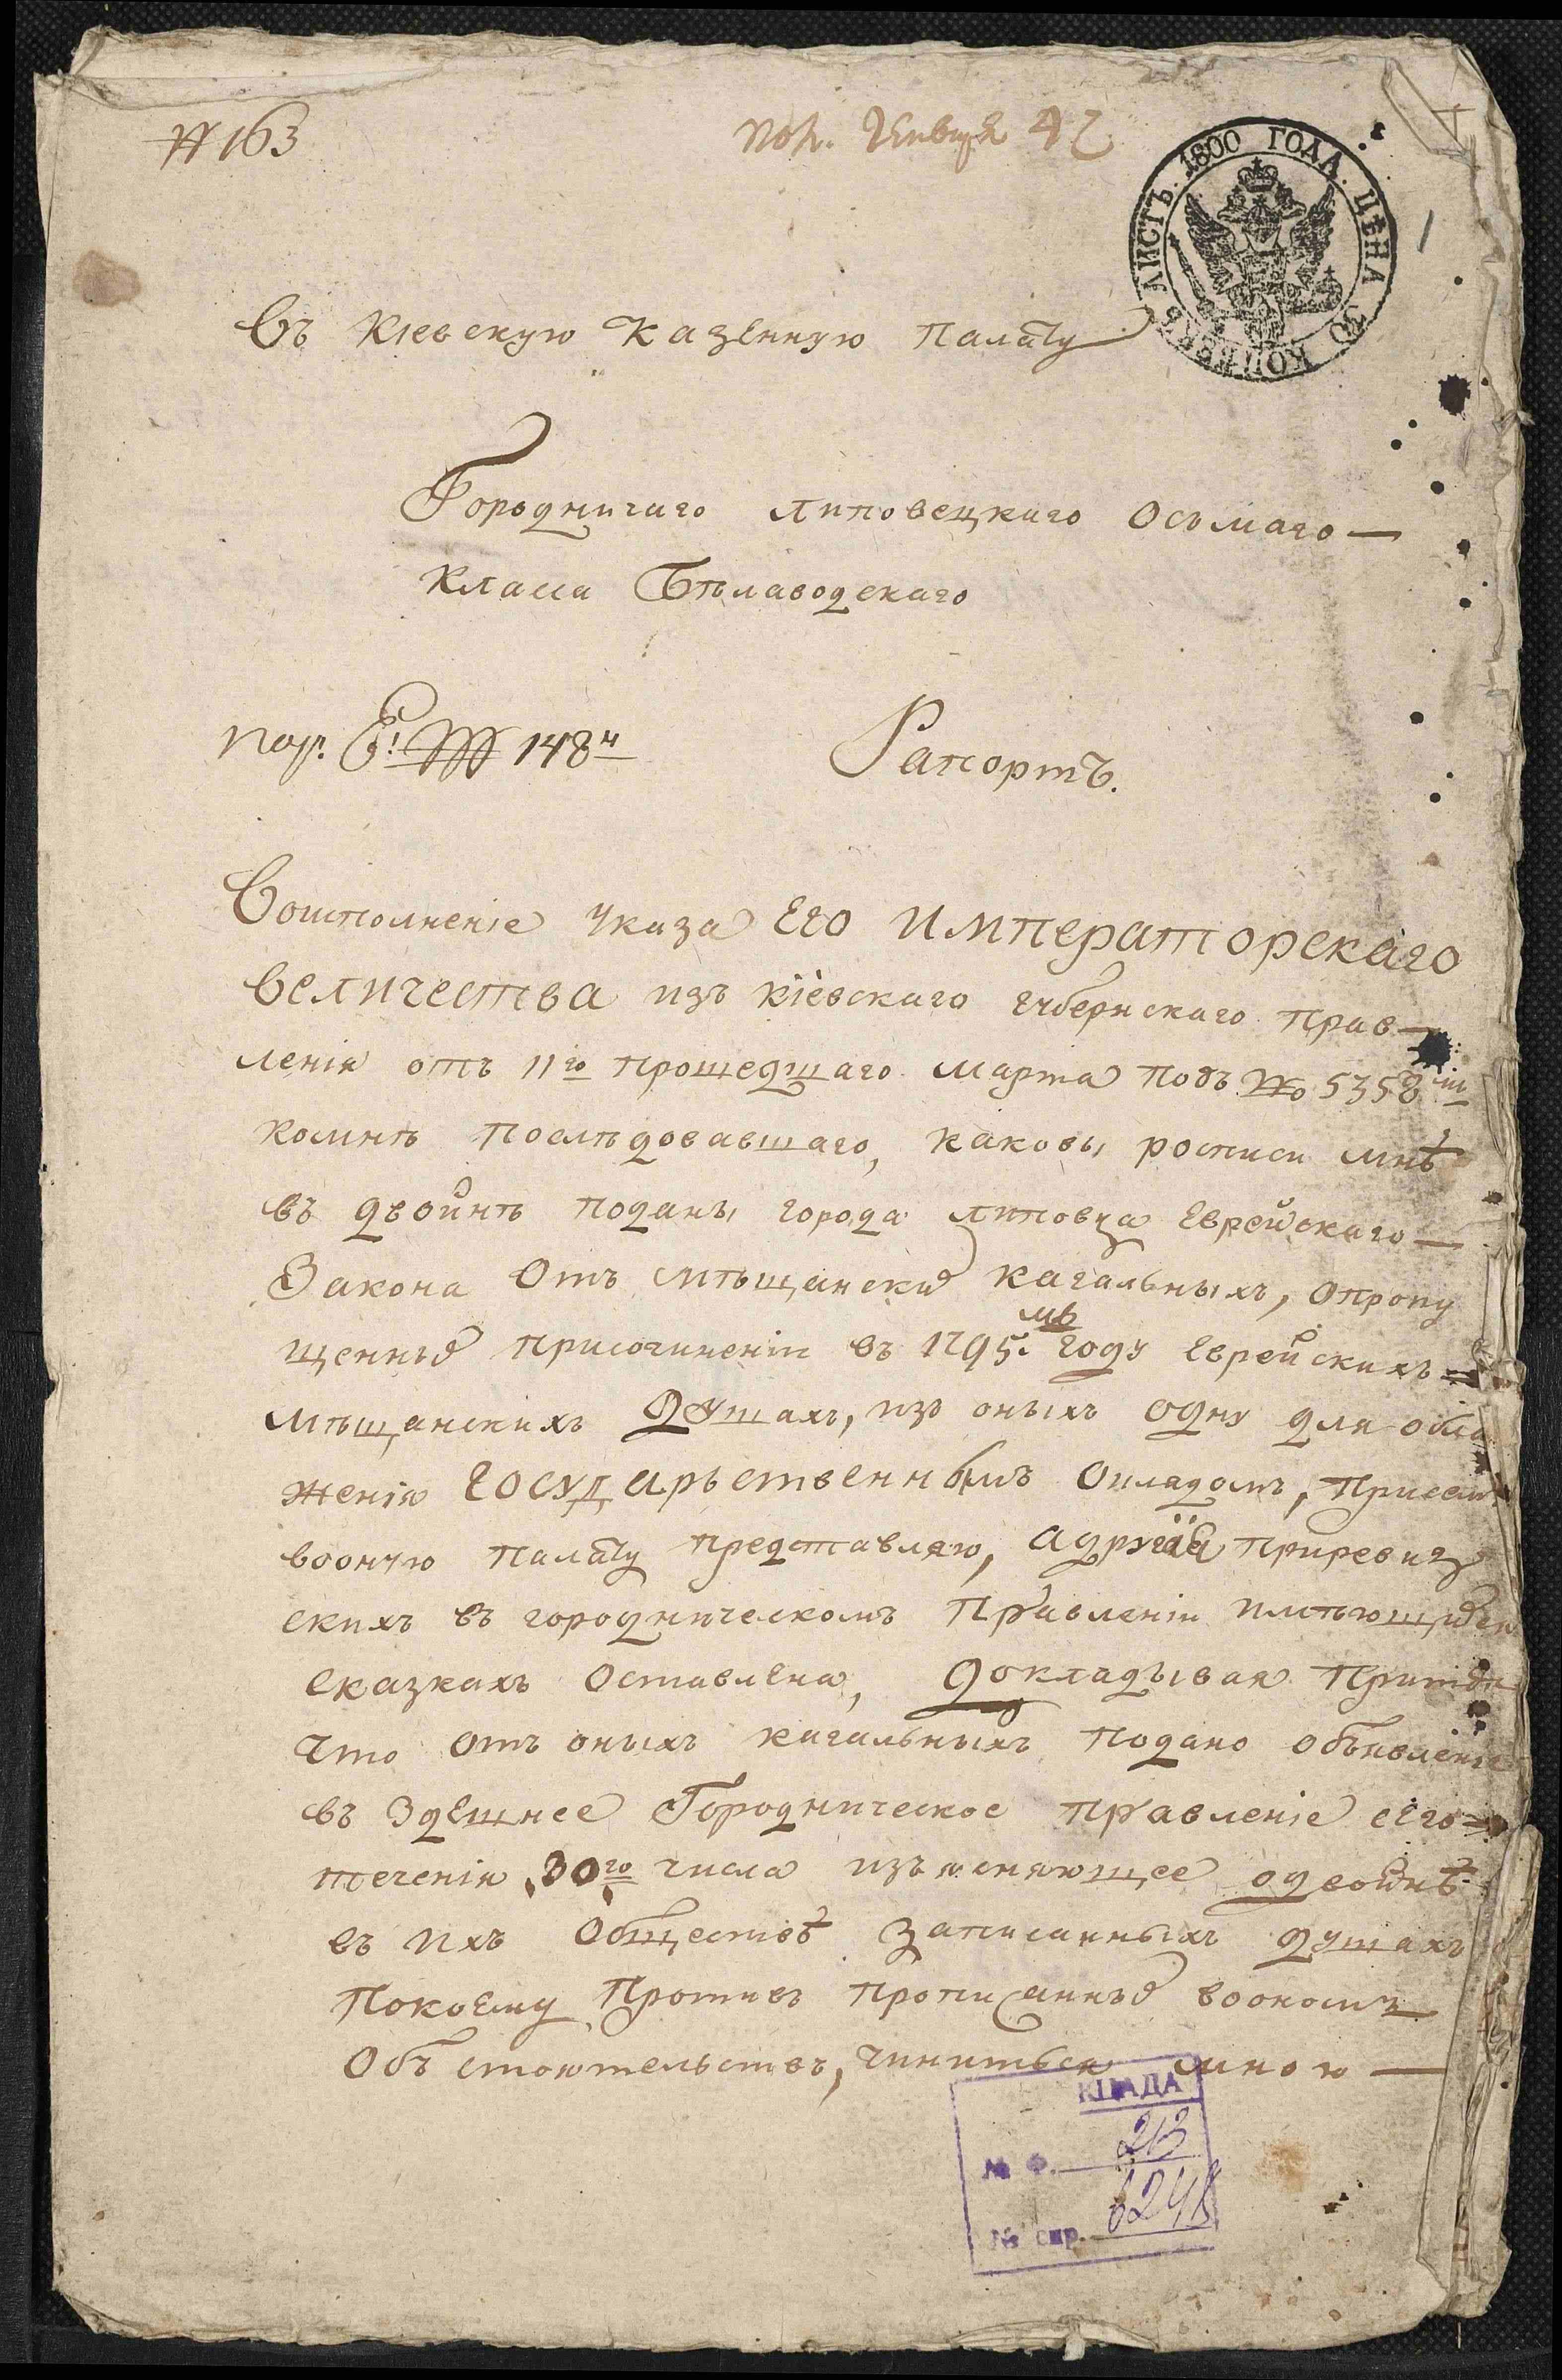 № 163
ЛИСТЪ. 1800 ГОДА. ЦѢНА 30 КОПѢЕКЪ
1
Въ Кіевскую Казенную Палату
Городничаго Липовецкаго Осьмаго
Класса Бѣлаводскаго
148
Рапортъ.
Воисполненіе Указа ЕГО ИМПЕРАТОРСКАГО
ВЕЛИЧЕСТВА изъ Кіевскаго Губернскаго Прав-
ленія отъ 11го прошедшаго марта подъ №о 5358мъ
комнѣ послѣдовавшаго, каковы росписи мнѣ
въ двойнѣ поданы города Липовца Еврейскаго
Закона Отъ мѣщанскихъ кагальныхъ, опропу
щенныхъ присочиненіи въ 1795.мъ году Еврейскихъ
мѣщанскихъ Душахъ, изъ оныхъ одну для обло
женія ГОСУДарьственнымъ Окладомъ, присемъ
вооную палату представляю, адругая приревиз
скихъ въ городническомъ Правленіи имѣющихся
сказкахъ Оставлена, докладывая притомъ
Что отъ оныхъ кагальныхъ подано объявленіе
въ Здешнее Городническое правленіе сего
теченія 30го числа изъясняющее одвойнѣ
въ ихъ Обществѣ записанныхъ душахъ
Покоему Противъ прописанныхъ воономъ
Обстоятельствъ, чиниться мною
КЦАДА
№ Ф. 213
№ спр. 6248